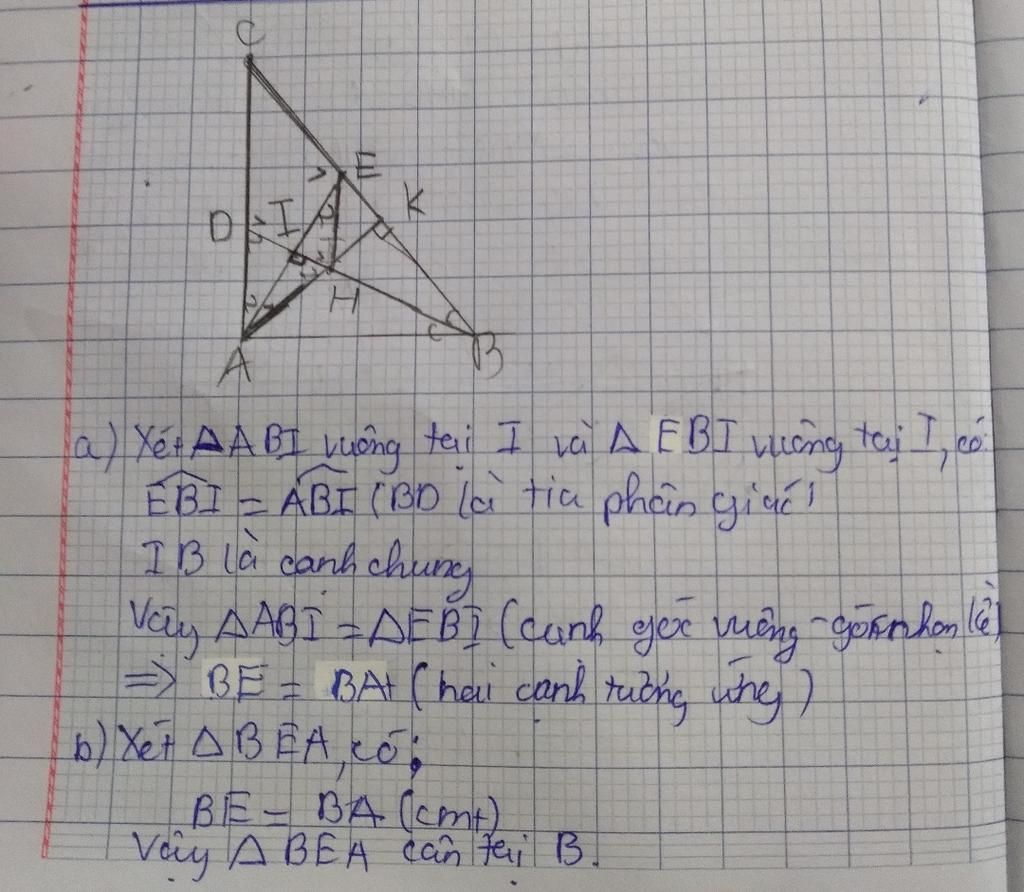 C
E
K
D
I
H
A
B
a) Xét ΔABI vuông tại I và ΔEBI vuông tại I, có:
EBI = ABI (BD là tia phân giác)
IB là cạnh chung
Vậy ΔABI = ΔEBI (cạnh góc vuông - góc nhọn kề)
=> BE = BA (hai cạnh tương ứng)
b) Xét ΔBEA, có:
BE = BA (cmt)
Vậy ΔBEA cân tại B.